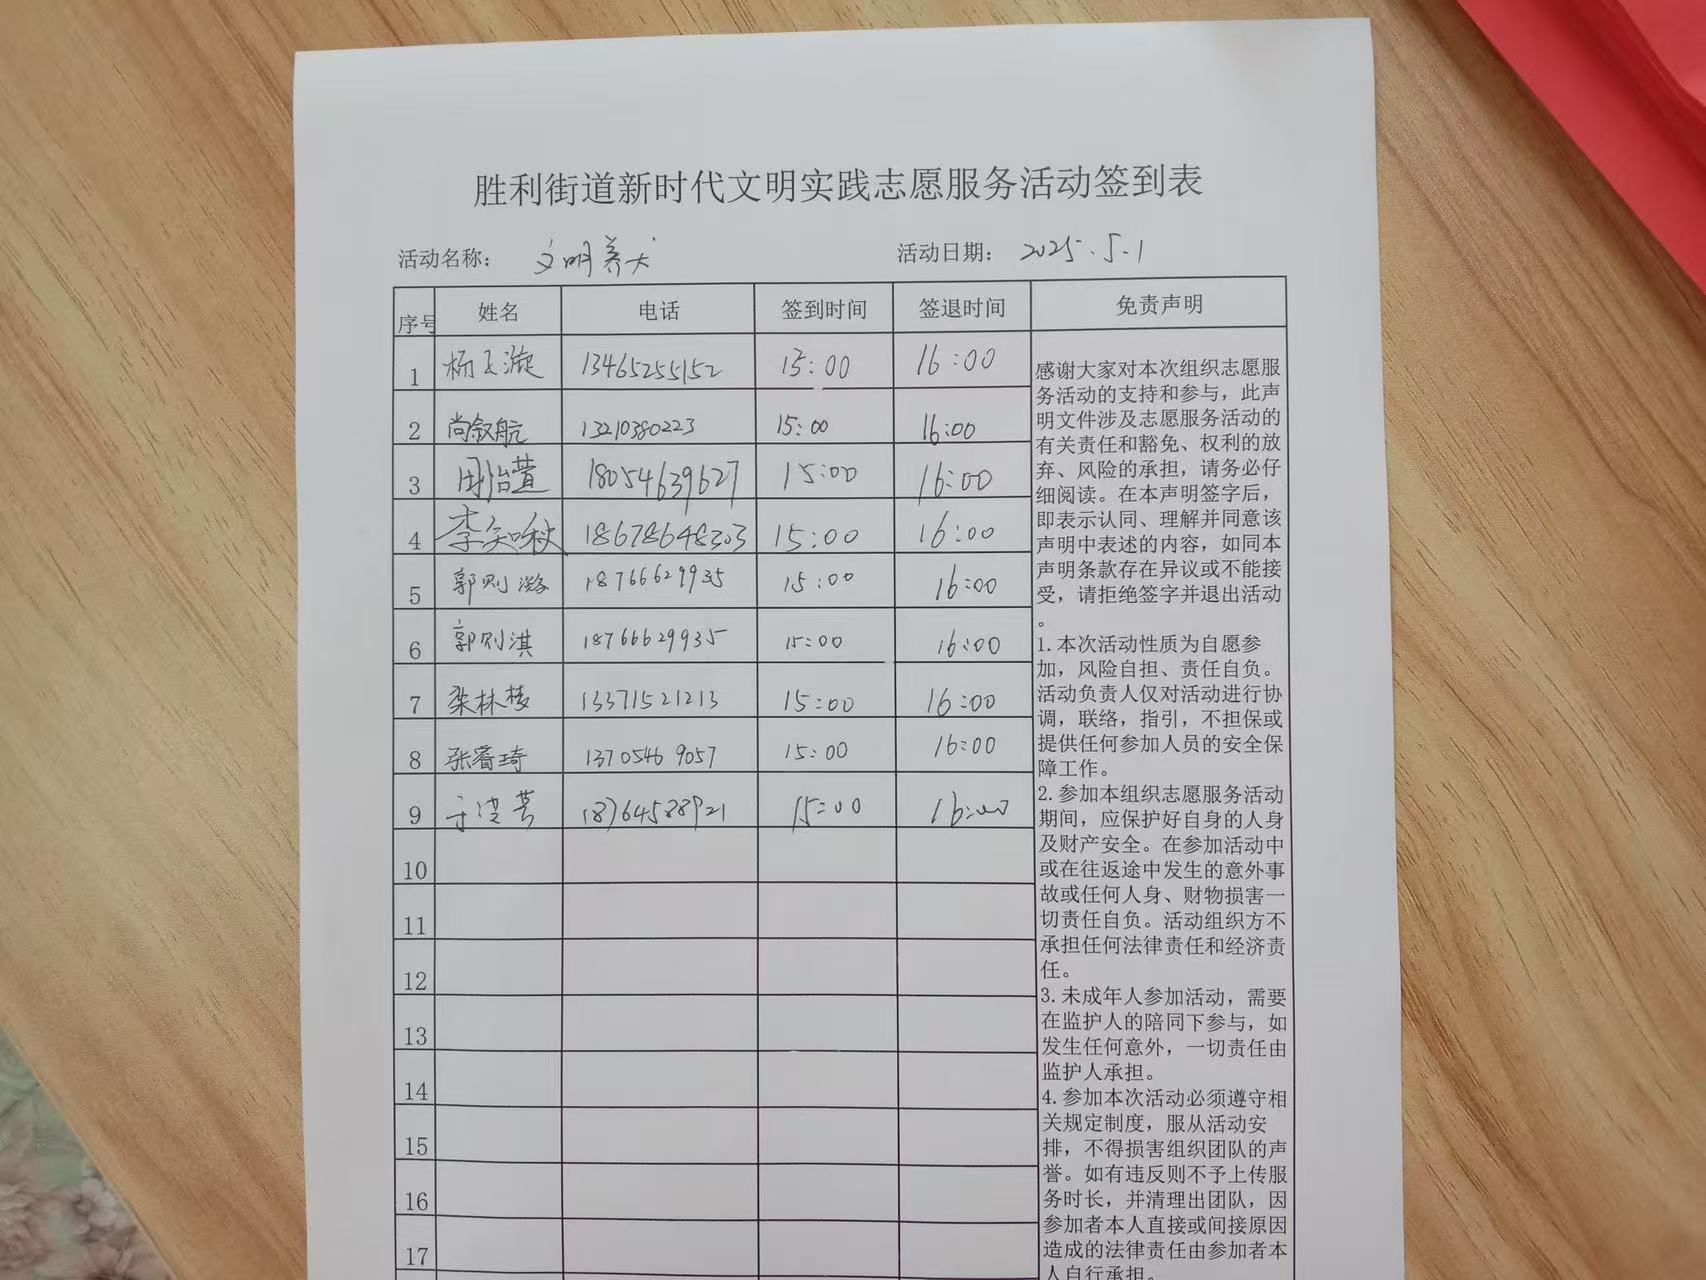 胜利街道新时代文明实践志愿服务活动签到表
活动名称： 文明养犬 活动日期： 2025.5.1
序号 姓名 电话 签到时间 签退时间 免责声明
1 杨子漩 13465255152 15:00 16:00
2 尚叙航 13210380223 15:00 16:00
3 田怡萱 18054639627 15:00 16:00
4 李知秋 18678648303 15:00 16:00
5 郭则潞 18766629935 15:00 16:00
6 郭则淇 18766629935 15:00 16:00
7 梁林梦 13371521213 15:00 16:00
8 张睿琦 13705469057 15:00 16:00
9 18764588921 15:00 16:00
10
11
12
13
14
15
16
17
感谢大家对本次组织志愿服
务活动的支持和参与，此声
明文件涉及志愿服务活动的
有关责任和豁免、权利的放
弃、风险的承担，请务必仔
细阅读。在本声明签字后，
即表示认同、理解并同意该
声明中表述的内容，如同本
声明条款存在异议或不能接
受，请拒绝签字并退出活动
。
1.本次活动性质为自愿参
加，风险自担、责任自负。
活动负责人仅对活动进行协
调，联络，指引，不担保或
提供任何参加人员的安全保
障工作。
2.参加本组织志愿服务活动
期间，应保护好自身的人身
及财产安全。在参加活动中
或在往返途中发生的意外事
故或任何人身、财物损害一
切责任自负。活动组织方不
承担任何法律责任和经济责
任。
3.未成年人参加活动，需要
在监护人的陪同下参与，如
发生任何意外，一切责任由
监护人承担。
4.参加本次活动必须遵守相
关规定制度，服从活动安
排，不得损害组织团队的声
誉。如有违反则不予上传服
务时长，并清理出团队，因
参加者本人直接或间接原因
造成的法律责任由参加者本
人自行承担。